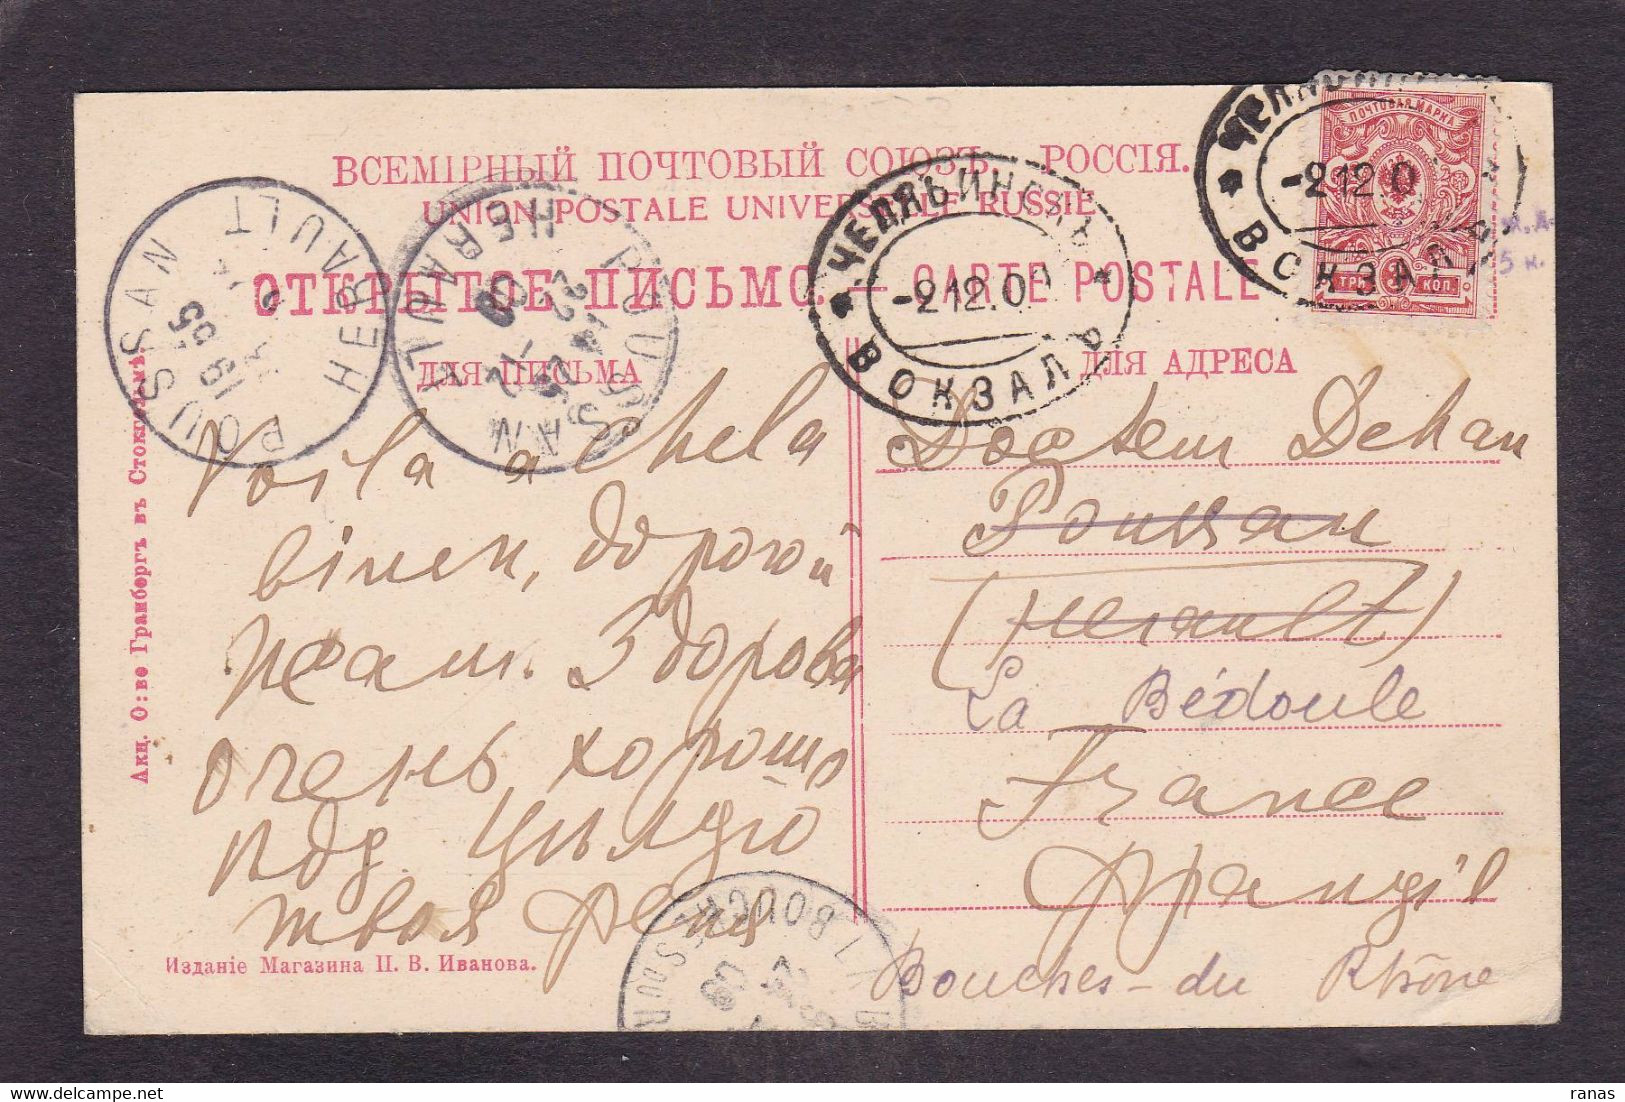 ВСЕМІРНЫЙ ПОЧТОВЫЙ СОЮЗЪ. РОССІЯ.
UNION POSTALE UNIVERSELLE RUSSIE
ОТКРЫТОЕ ПИСЬМО. — CARTE POSTALE
ДЛЯ ПИСЬМА
ДЛЯ АДРЕСА
ПОЧТОВАЯ МАРКА
КОП.
ЧЕЛЯБИНСКЪ
-2.12.0
ВОКЗАЛ
-2.12.0
ВОКЗАЛ
5 к.
POUSSAN
HERAULT
POUSSAN
HERAULT
Voila
дорогой
Здорова
очень хорошо
под
твоя
Docteur Dehan
Poussan
(Herault)
La Bédoule
France
Франція
Bouches-du Rhône
BOUCHES DU R
Акц. О:ве Гранбергъ въ Стокгольмѣ
Изданіе Магазина П. В. Иванова.
ranas